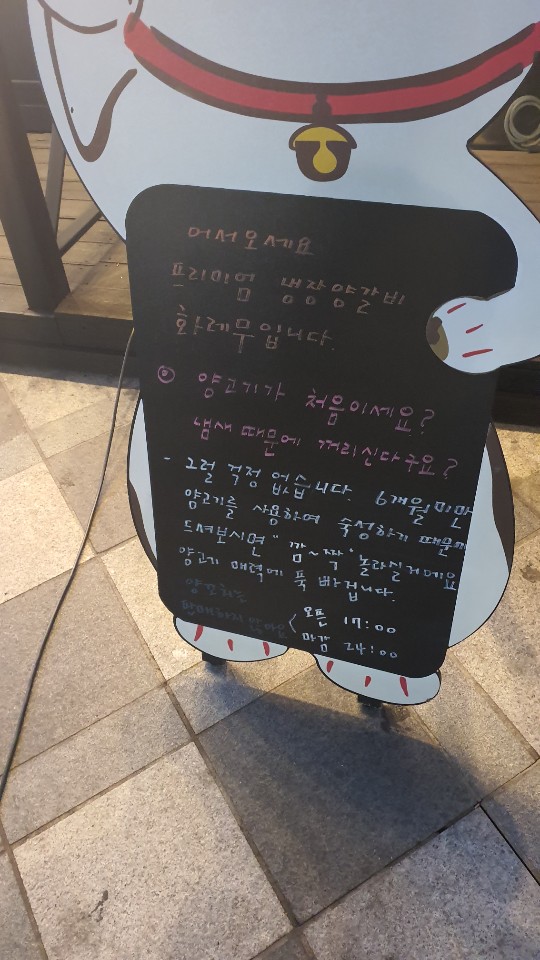 어서오세요
프리미엄 냉장양갈비
화례무입니다.
◎ 양고기가 처음이세요?
냄새 때문에 꺼리신다구요?
- 그럴 걱정 없습니다. 6개월미만
양고기를 사용하여 숙성하기 때문에
드셔보시면 "깜~짝" 놀라실거에요
양고기 매력에 푹 빠겁니다.
양꼬치는
판매하지 않아요
오픈 17:00
마감 24:00